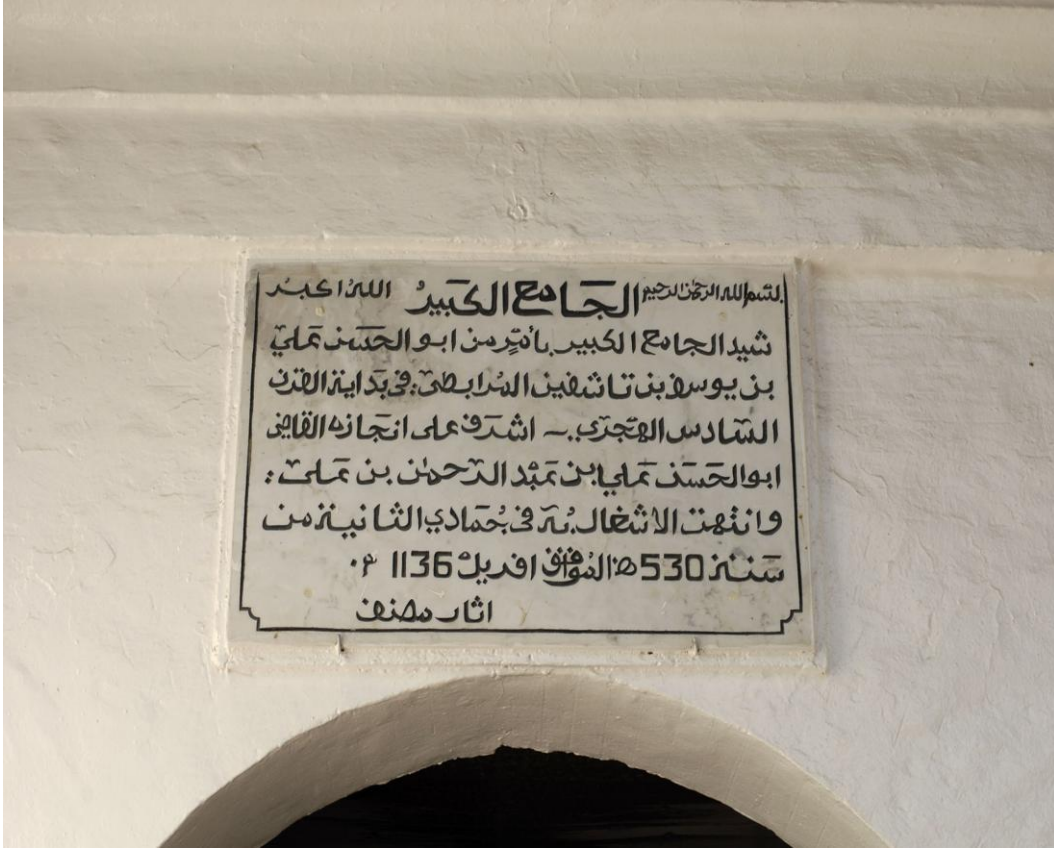 بسم الله الرحمن الرحيم الجامع الكبير الله اكبر
شيد الجامع الكبير بأمر من ابو الحسن علي
بن يوسف بن تاشفين المرابطي في بداية القرن
السادس الهجري ~ اشرف على انجازه القاضي
ابو الحسن علي ابن عبد الرحمن بن علي :
وانتهت الاشغال به في جمادي الثانية من
سنة 530 هـ الموافق افريل 1136 م.
اثار مصنف